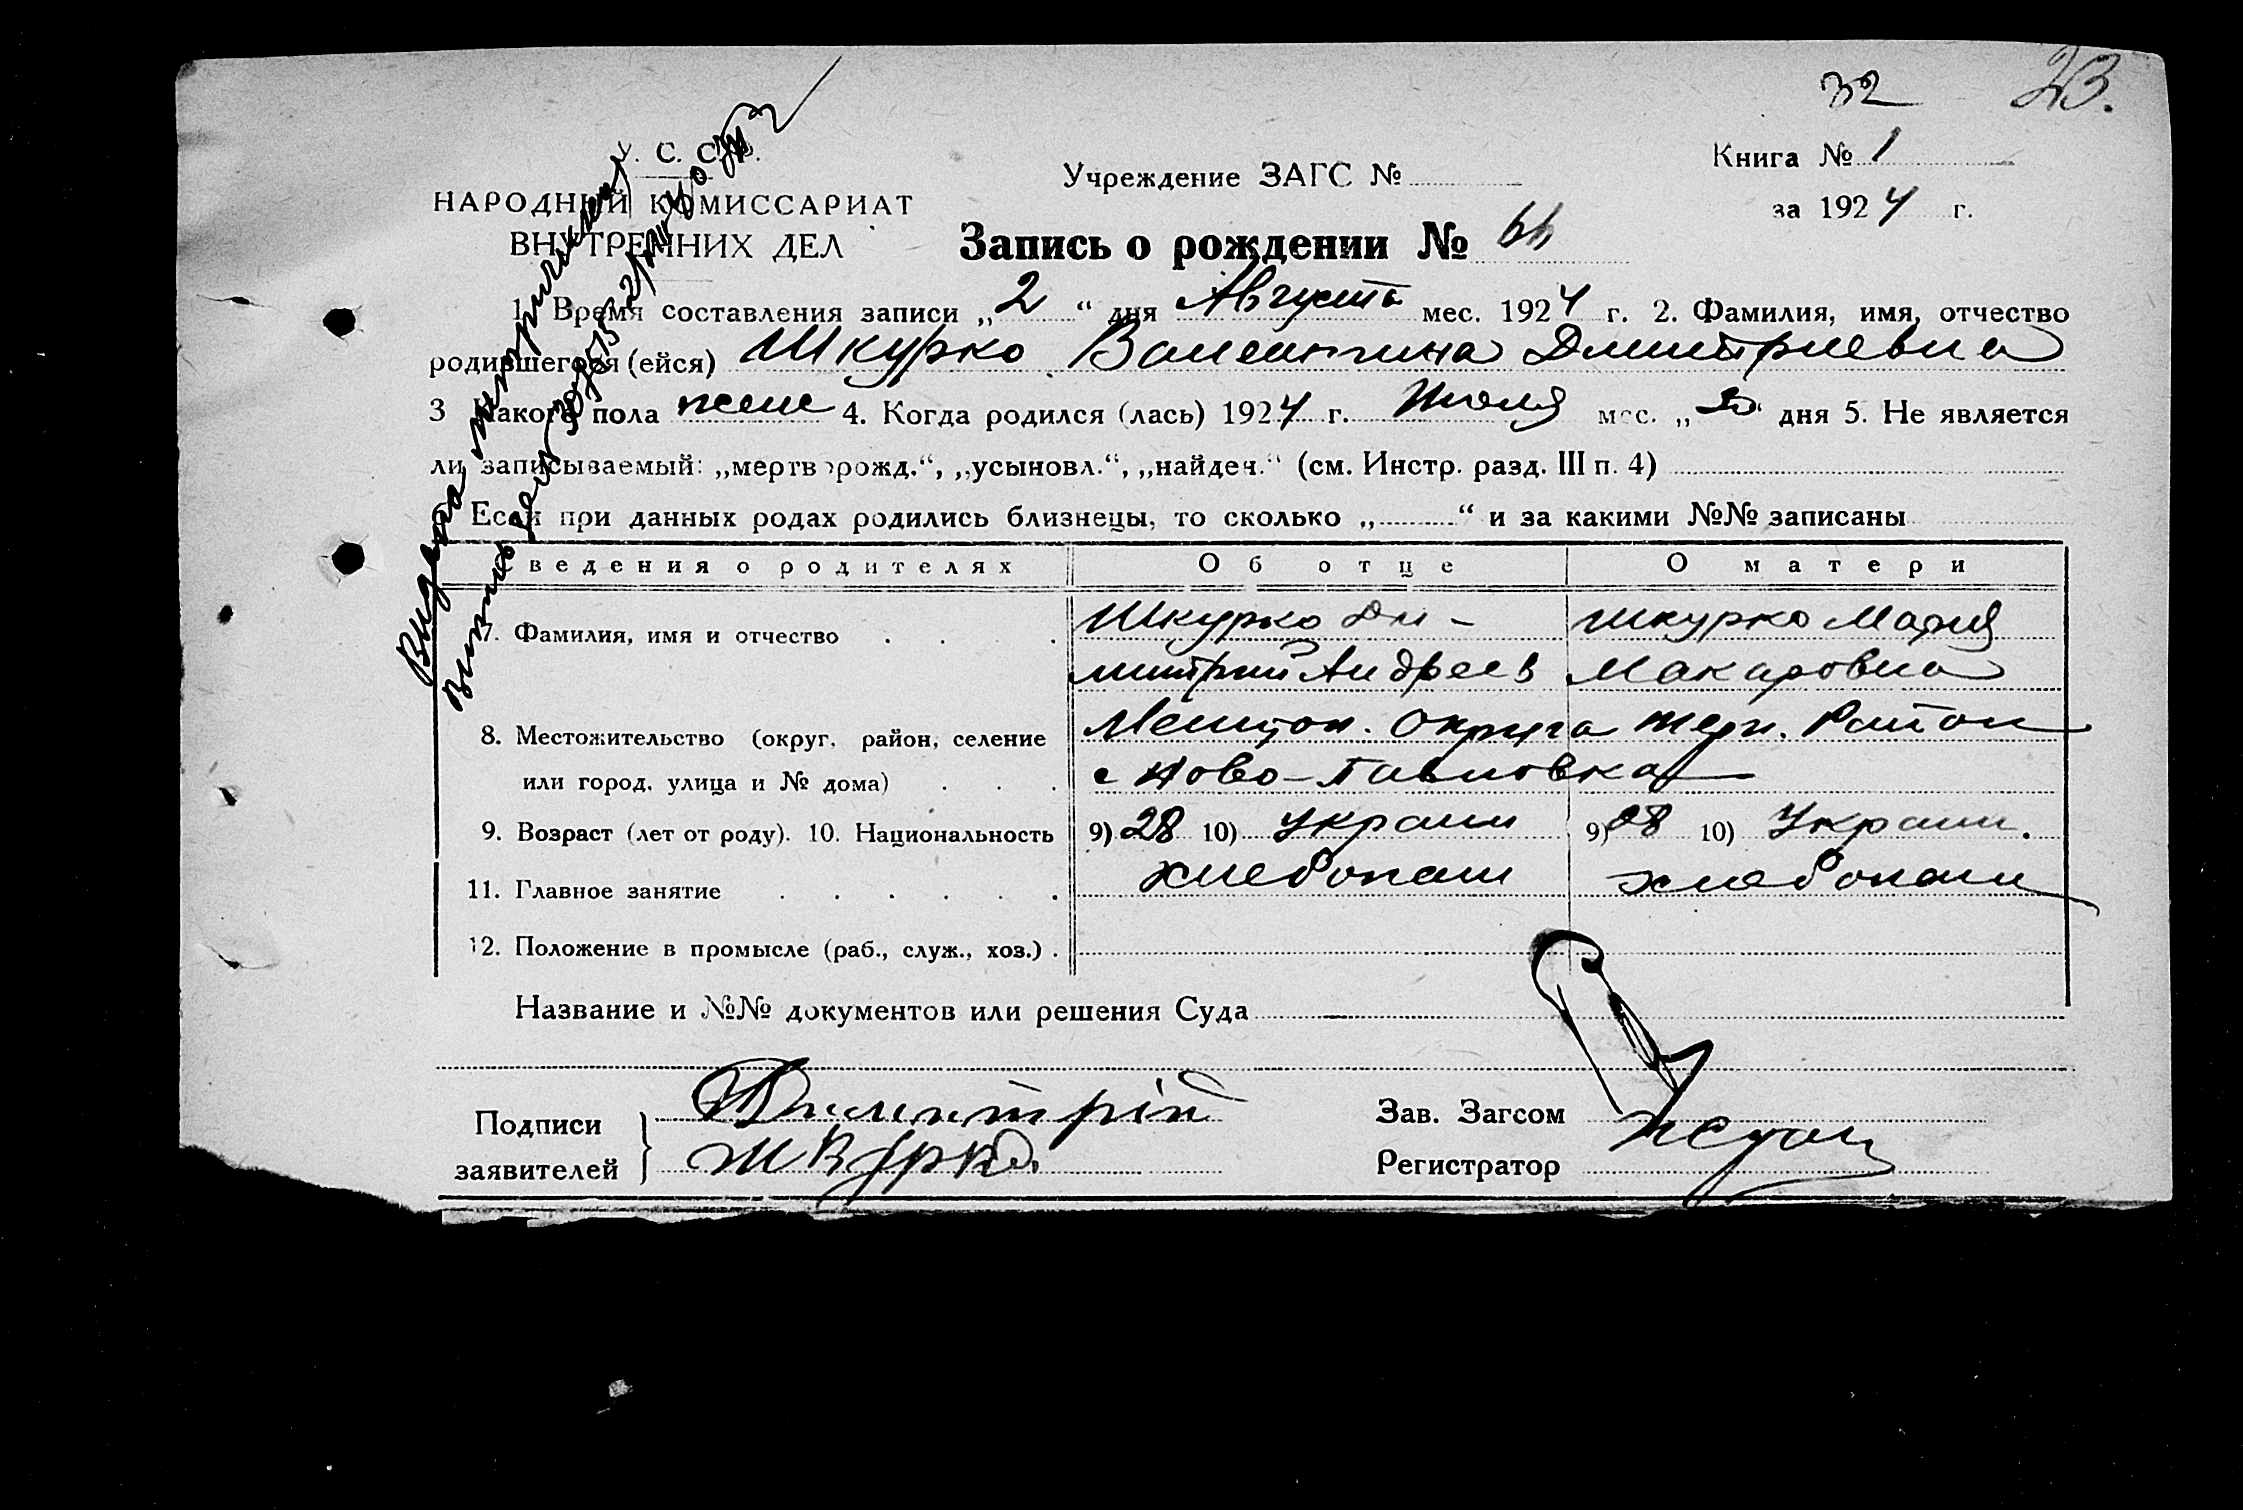 32 23.
У. С. С. Р.
НАРОДНЫЙ КОМИССАРИАТ
ВНУТРЕННИХ ДЕЛ
Учреждение ЗАГС №
Книга № 1
за 1924 г.
Запись о рождении № 66
1. Время составления записи „2“ дня Августа мес. 1924 г. 2. Фамилия, имя, отчество
родившегося (ейся) Шкурко Валентина Дмитриевна
3 Какого пола жен 4. Когда родился (лась) 1924 г. Июля мес. „20“ дня 5. Не является
ли записываемый: „мертворожд.“, „усыновл.“, „найден.“ (см. Инстр. разд. III п. 4)
Если при данных родах родились близнецы, то сколько „ “ и за какими №№ записаны
Сведения о родителях Об отце О матери
7. Фамилия, имя и отчество Шкурко Дм- Шкурко Мария
митрий Андреев Макаровна
8. Местожительство (округ, район, селение Мелитоп. Округа Терп. Район
или город, улица и № дома) с Ново-Павловка
9. Возраст (лет от роду). 10. Национальность 9) 28 10) Украин 9) 28 10) Украин.
11. Главное занятие хлебопаш хлебопаш
12. Положение в промысле (раб., служ., хоз.)
Название и №№ документов или решения Суда
Подписи заявителей Дмитрій
Шкурко
Зав. Загсом
Регистратор
Выдана
Выпись